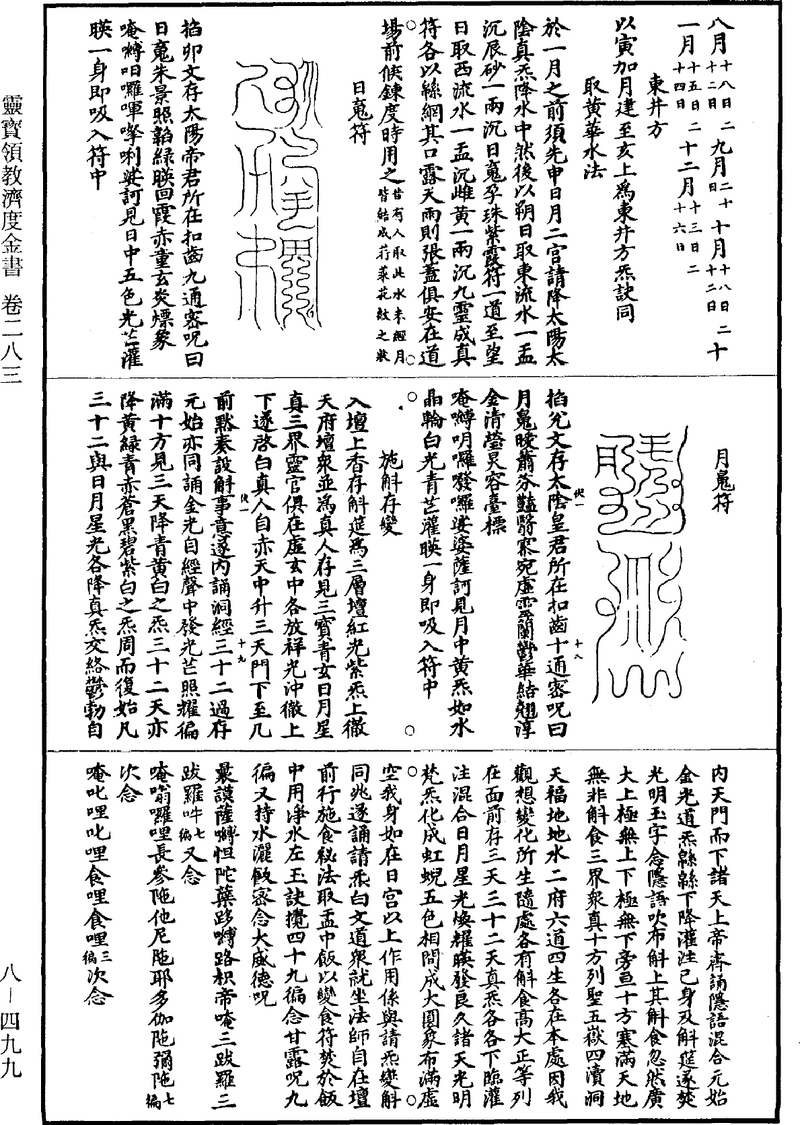 靈寶領教濟度金書 卷二八三
八—四九九
八月十八日十二日 二九月二十日 十月十八日十二日 二十
一月十五日十四日 二十二月十三日十六日 二
東井方
以寅加月建至亥上為東井方炁訣同
取黃華水法
於一月之前須先申日月二宮請降太陽太
陰真炁降水中然後以朔日取東流水一盂
沉辰砂一兩沉日䰟孕珠紫霞符一道至望
日取西流水一盂沉雌黃一兩沉九靈成真
符各以絲網其口露天雨則張蓋俱安在道
場前俟鍊度時用之昔有人取此水未經月皆結成荇菜花紋之狀
日䰟符
掐卯文存太陽帝君所在扣齒九通密呪曰
日䰟朱景照韜綠暎回霞赤童玄炎熛象
唵嚩呾囉㖶㘑唎娑訶見日中五色光芒灌
暎一身即吸入符中
月䰟符
掐兊文存太陰皇君所在扣齒十通密呪曰
月䰟曖蕭芬豔翳寥宛虛靈蘭鬱華結翹淳
金清瑩炅容臺標
唵嚩明囉囉娑婆薩訶見月中黃炁如水
晶輪白光青芒灌暎一身即吸入符中
施斛存變
入壇上香存斛筵為三層壇紅光紫炁上徹
天府壇眾並為真人存見三寶青玄日月星
真三界靈官俱在虛玄中各放祥光沖徹上
下遂啓白真人自赤天中升三天門下至几
前默奏設斛事意遂內誦洞經三十二過存
元始亦同誦金光自經聲中發光芒照耀徧
滿十方見三天降青黃白之炁三十二天亦
降黃綠青赤蒼黑碧紫白之炁周而復始凡
三十二與日月星光各降真炁交絡鬱勃自
內天門而下諸天上帝齊誦隱語混合元始
金光道炁緜緜下降灌注己身及斛筵遂焚
光明玉字念隱語吹布斛上其斛食忽然廣
大上極無上下極無下旁亘十方塞滿天地
無非斛食三界眾真十方列聖五嶽四瀆洞
天福地地水二府六道四生各在本處因我
觀想變化所生隨處各有斛食高大正等列
在面前存三天三十二天真炁各各下臨灌
注混合日月星光煥耀暎發良久諸天光明
梵炁化成虹蜺五色相間成大圓象布滿虛
空我身如在日宮以上作用係與請炁變斛
同兆遂誦請炁白文道眾就坐法師自在壇
前行施食秘法取盂中飯以變食符焚於飯
中用淨水左玉訣攪四十九徧念甘露呪九
徧又持水灑飯密念大威德呪
曩謨薩嚩怛陀蘖跢嚩路枳帝唵三跋羅三
跋羅吽七徧又念
唵嗡囉哩長參陁他尼陁耶多伽陁彌陁七徧
次念
唵叱哩叱哩食哩食哩三徧次念